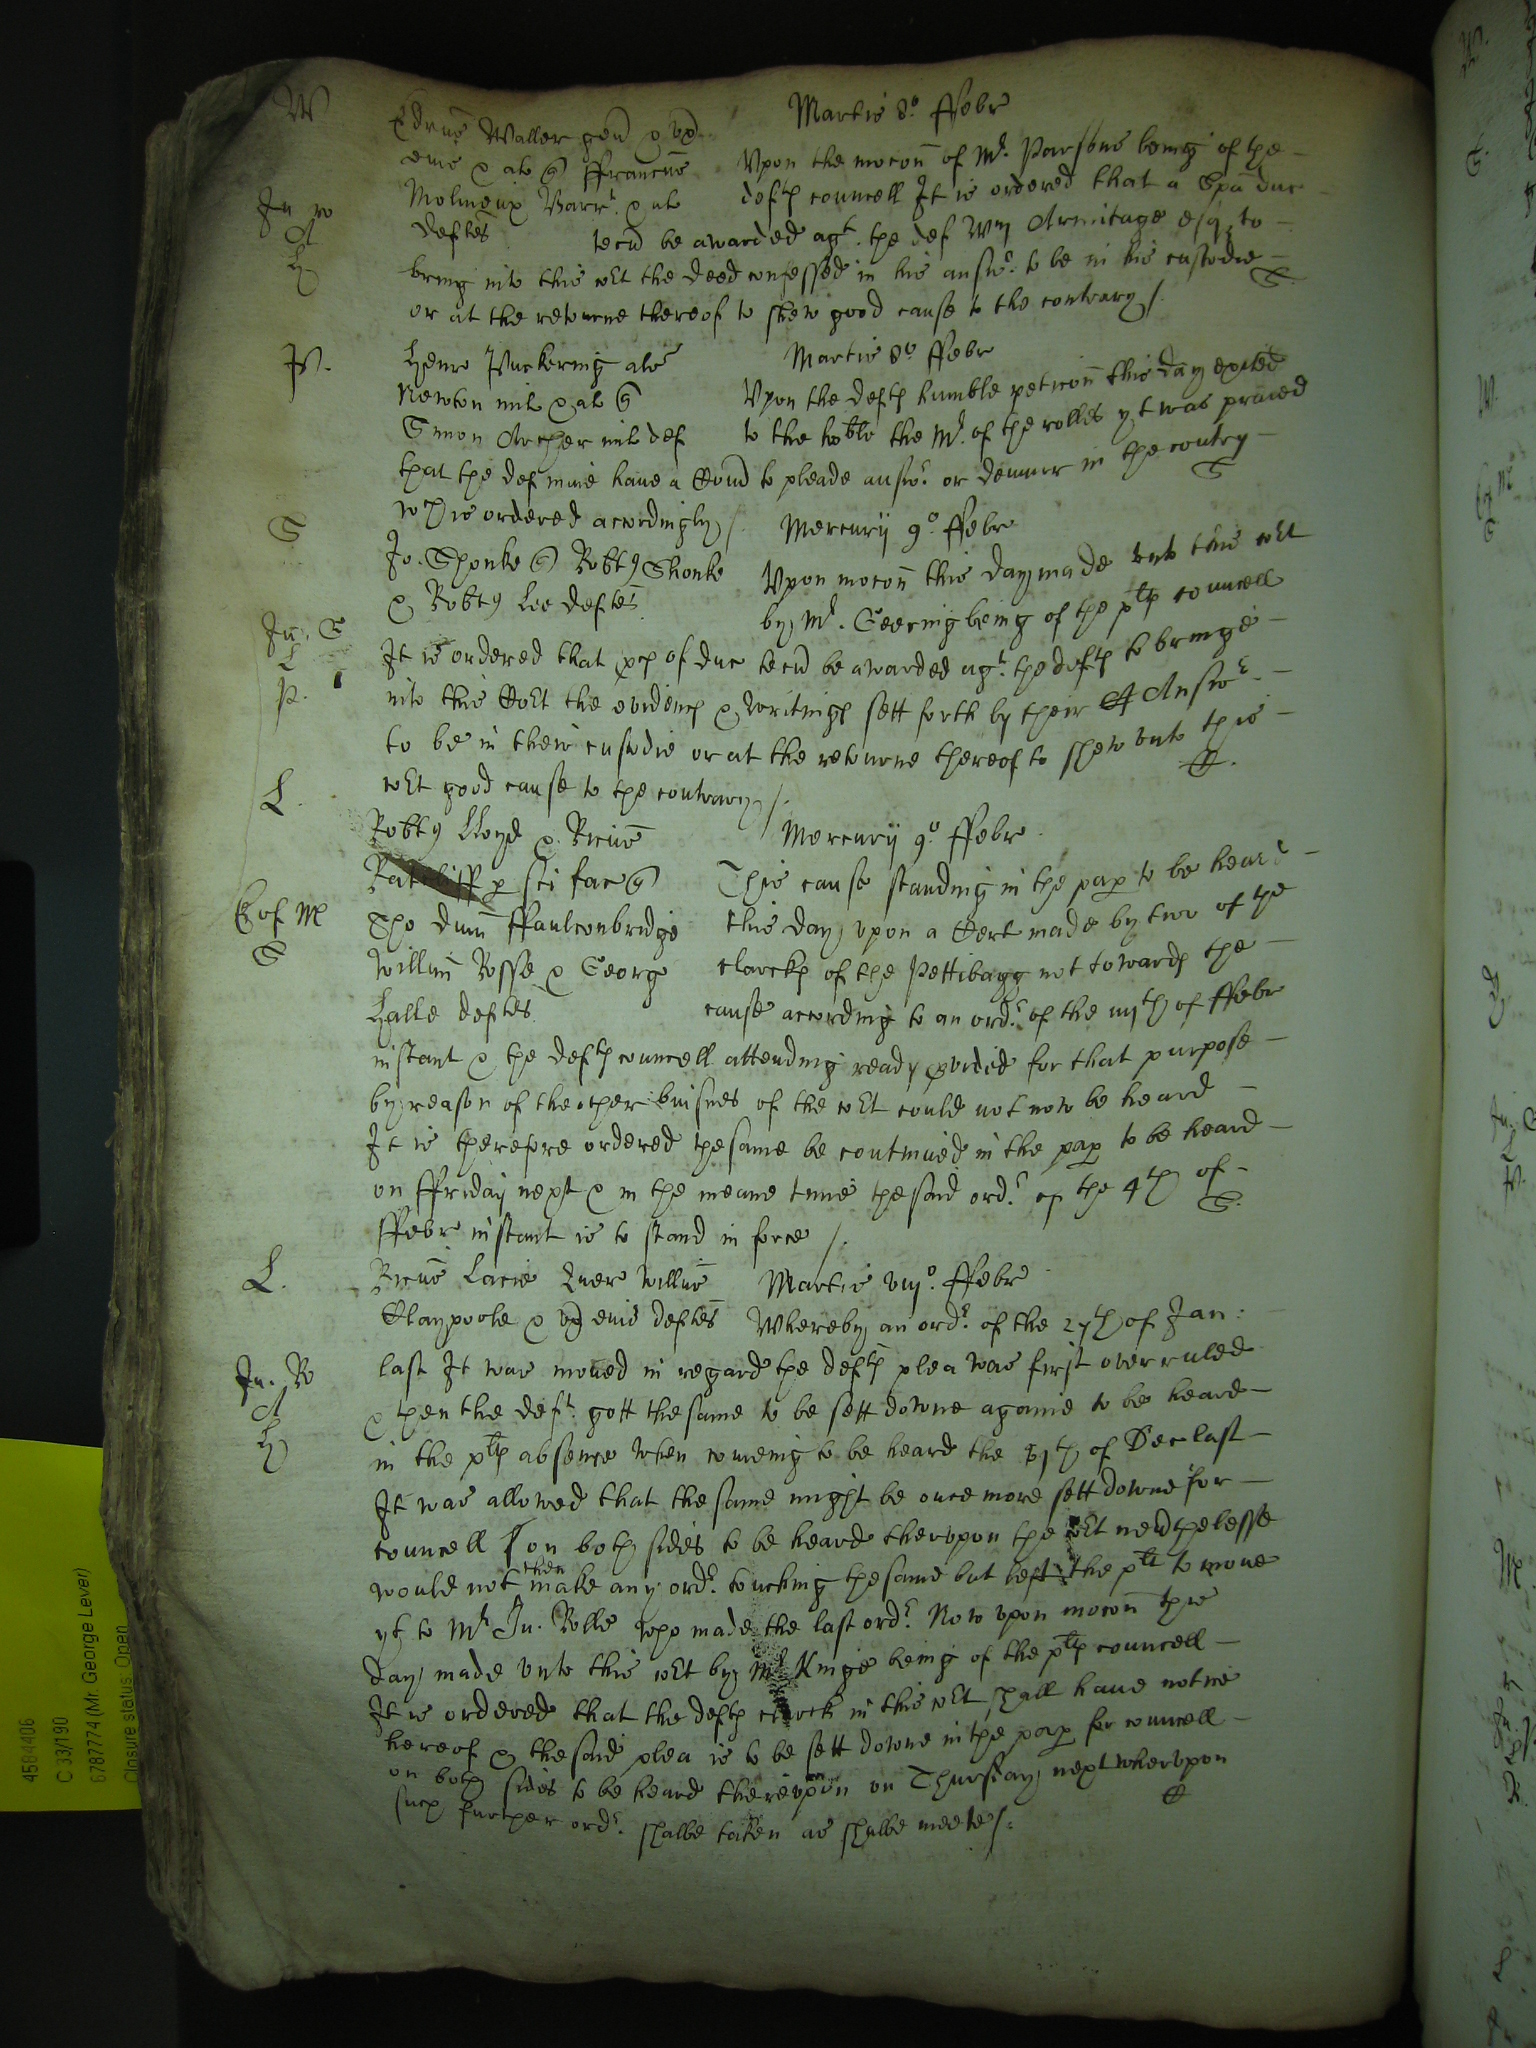 W
Martis 8o ffebr
Edrus Waller gen & ux
eius & al q ffrancus
Molineux Barrt & al
deftes
Upon the mocon of Mr. Parsons being of the
deftes councell It is ordered that a Spa duc
tecu be awarded agt. the def Wm Armitage esqr to
bring into this cort the deed confessed in his answr. to be in his custodie
or at the retourne thereof to shew good cause to the contrary /.
Ju ro
A
H
P.
Henr Puckering als
Newton milt & al q
Simon Archer milt def
Martis 8o ffebr
Upon the deftes humble peticon this day exited
to the hoble the Mr. of the rolles yt was praied
that the def maie have a Comd to pleade answr. or demurr in the contry
wch is ordered accordingly /.
S
Mercurij 9o. ffebr
Jo. Shonke q Robtu Shonke
& Robtu Lee deftes
Upon mocon this day made unto this cort
by Mr. Geering being of the pltes councell
It is ordered that proces of duc tecu be awarded agt. the deftes to bringe
into this Cort the evidences & writinges sett forth by their Answr.
to be in their custodie or at the retourne thereof to shew unto this
cort good cause to the contrary /.
Ju. G
L
P.
L.
Robtu Lloyd & Ricus
Ratcliff p sci fac q
Tho dum ffaulconbridge
Willm Rosse & George
Halle deftes
Mercurij 9o ffebr
This cause standing in the pap to be heard
this day upon a Cert made by two of the
clarckes of the Pettibagg not towards the
cause according to an ordr. of the iiijth of ffebr
instant & the deftes councell attending ready pvided for that purpose
by reason of the other buisines of the cort could not now be heard
It is therefore ordered the same be continued in the pap to be heard
on ffriday next & in the meane time the said ordr. of the 4th of
ffebr instant is to stand in force /.
E of M
S
L.
Ricus Lacie Quer Willus
Claypoole & ux eius deftes
Martis viijo. ffebr
Whereby an ordr. of the 27th of Jan:
last It was moved in regard the deftes plea was first overruled
& then the deft. gott the same to be sett downe againe to be heard
in the pltes absence when comeing to be heard the th of Dec last
It was allowed that the same might be once more sett downe for
councell on both sides to be heard therupon the cort nevrthelesse
would not then make any ordr. touching the same but left the plt to move
yt to Mr Ju. Rolle who made the last ordr. Now upon mocon this
day made unto this cort by Mr Kinge being of the pltes councell
It is ordered that the deftes clarck in this cort shall have notice
hereof & the said plea is to be sett downe in the pap for councell
on both sides to be heard thereupon on Thursday next wherupon
such further ordr. shalbe taken as shalbe meete /.
Ju. Ro
A
H
4584406
C 33/190
6787774 (Mr. George Lever)
Closure status: Open